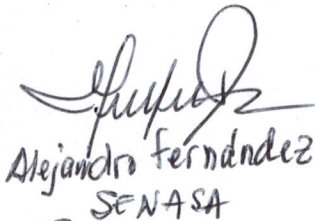 Alejandro Fernández
SENASA